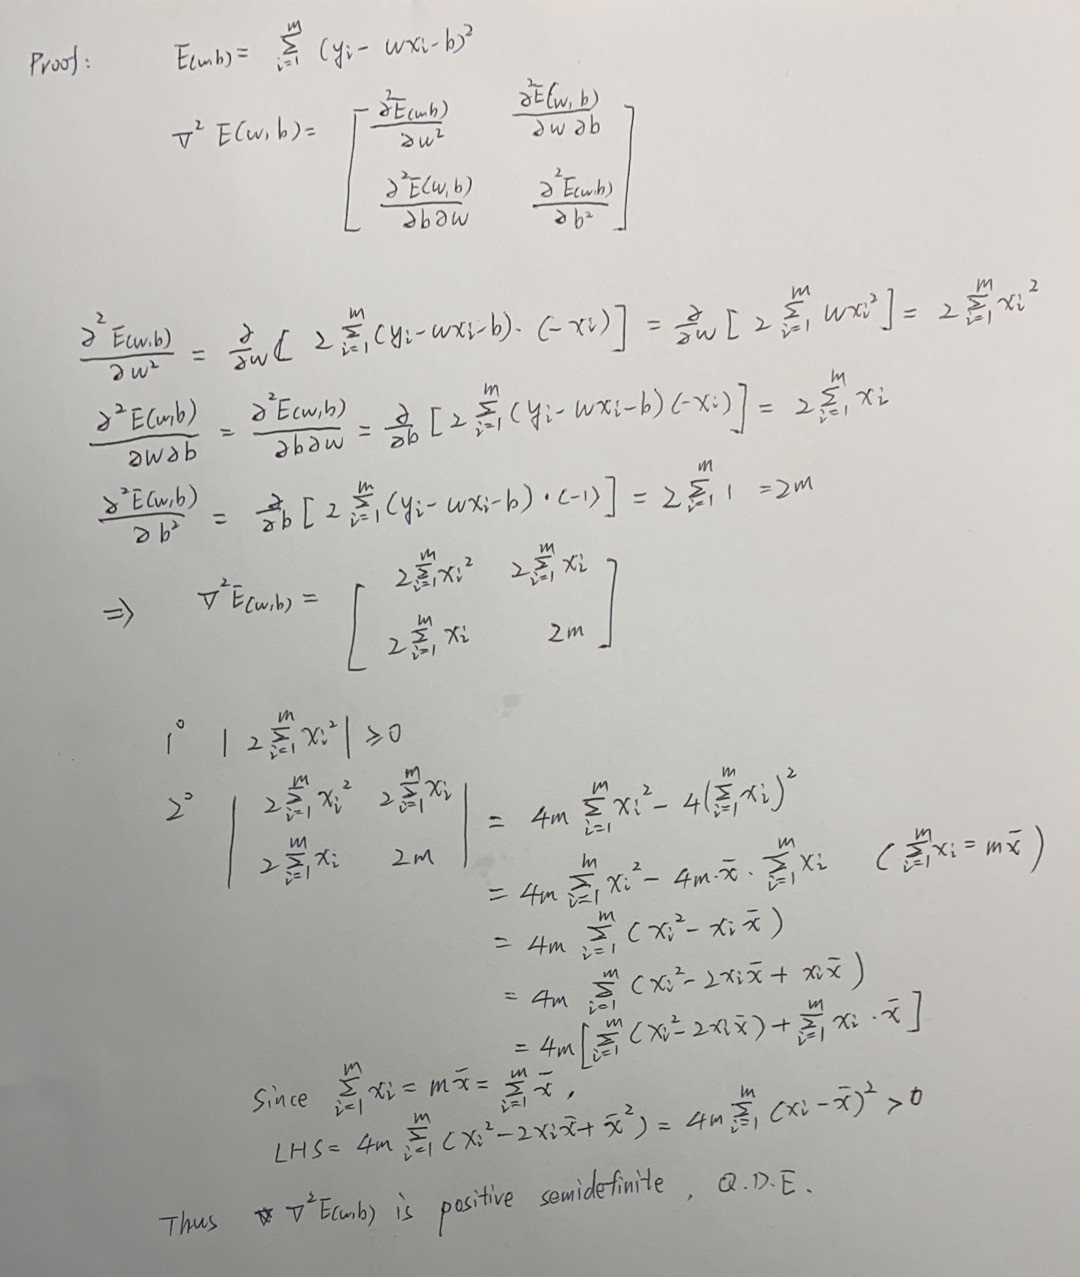 Proof: E(w,b) = ∑_{i=1}^{m} (yi - wxi - b)²
∇² E(w,b) = [ ∂²E(w,b)/∂w²  ∂²E(w,b)/∂w∂b
∂²E(w,b)/∂b∂w  ∂²E(w,b)/∂b² ]
∂²E(w,b)/∂w² = ∂/∂w [ 2 ∑_{i=1}^{m} (yi - wxi - b)·(-xi) ] = ∂/∂w [ 2 ∑_{i=1}^{m} wxi² ] = 2 ∑_{i=1}^{m} xi²
∂²E(w,b)/∂w∂b = ∂²E(w,b)/∂b∂w = ∂/∂b [ 2 ∑_{i=1}^{m} (yi - wxi - b)(-xi) ] = 2 ∑_{i=1}^{m} xi
∂²E(w,b)/∂b² = ∂/∂b [ 2 ∑_{i=1}^{m} (yi - wxi - b)·(-1) ] = 2 ∑_{i=1}^{m} 1 = 2m
⇒ ∇²E(w,b) = [ 2∑_{i=1}^{m} xi²  2∑_{i=1}^{m} xi
2∑_{i=1}^{m} xi  2m ]
1° | 2 ∑_{i=1}^{m} xi² | ≥ 0
2° | 2∑_{i=1}^{m} xi²  2∑_{i=1}^{m} xi
2∑_{i=1}^{m} xi  2m | = 4m ∑_{i=1}^{m} xi² - 4(∑_{i=1}^{m} xi)²
= 4m ∑_{i=1}^{m} xi² - 4m·x̄·∑_{i=1}^{m} xi  ( ∑_{i=1}^{m} xi = mx̄ )
= 4m ∑_{i=1}^{m} (xi² - xi x̄)
= 4m ∑_{i=1}^{m} (xi² - 2xi x̄ + xi x̄)
= 4m [ ∑_{i=1}^{m} (xi² - 2xi x̄) + ∑_{i=1}^{m} xi · x̄ ]
Since ∑_{i=1}^{m} xi = mx̄ = ∑_{i=1}^{m} x̄,
LHS = 4m ∑_{i=1}^{m} (xi² - 2xi x̄ + x̄²) = 4m ∑_{i=1}^{m} (xi - x̄)² > 0
Thus ∇²E(w,b) is positive semidefinite, Q.D.E.